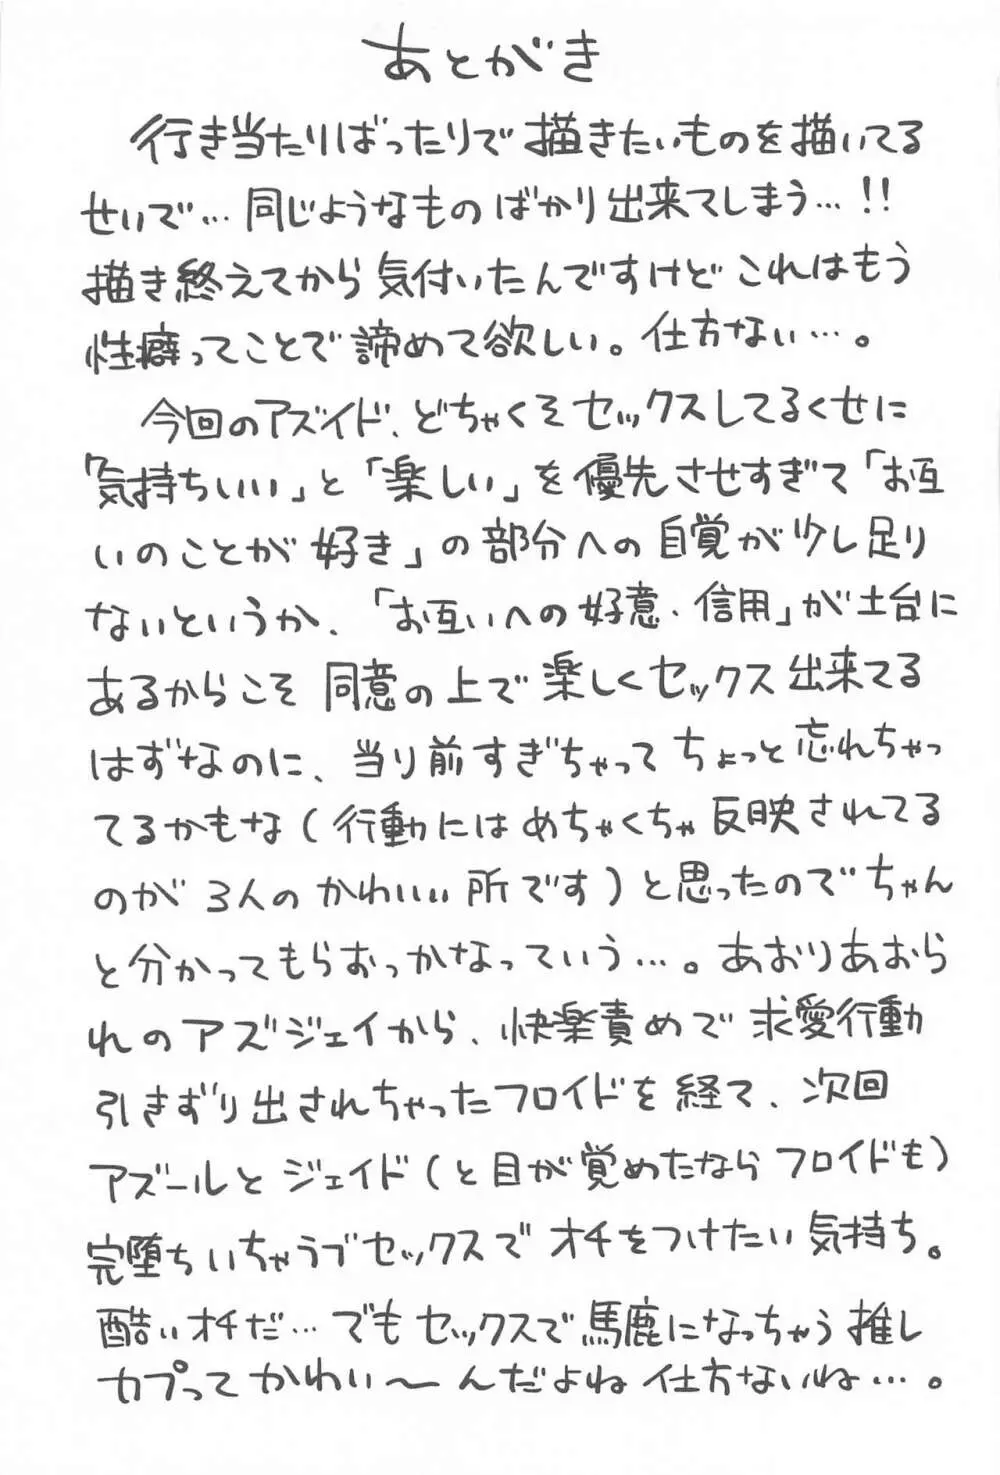 あとがき
行き当たりばったりで描きたいものを描いてる
せいで…同じようなものばかり出来てしまう…!!
描き終えてから気付いたんですけどこれはもう
性癖ってことで諦めて欲しい。仕方ない…。
今回のアズイド、どちゃくそセックスしてるくせに
「気持ちいい」と「楽しい」を優先させすぎて「お互
いのことが好き」の部分への自覚が少し足り
ないというか、「お互いへの好意・信用」が土台に
あるからこそ同意の上で楽しくセックス出来てる
はずなのに、当り前すぎちゃってちょっと忘れちゃっ
てるかもな(行動にはめちゃくちゃ反映されてる
のが3人のかわいい所です)と思ったのでちゃん
と分かってもらおっかなっていう…。あおりあおら
れのアズジェイから、快楽責めで求愛行動
引きずり出されちゃったフロイドを経て、次回
アズールとジェイド(と目が覚めたならフロイドも)
完堕ちいちゃらブセックスでオチをつけたい気持ち。
酷いオチだ…でもセックスで馬鹿になっちゃう推し
カプってかわい〜んだよね仕方ないね…。